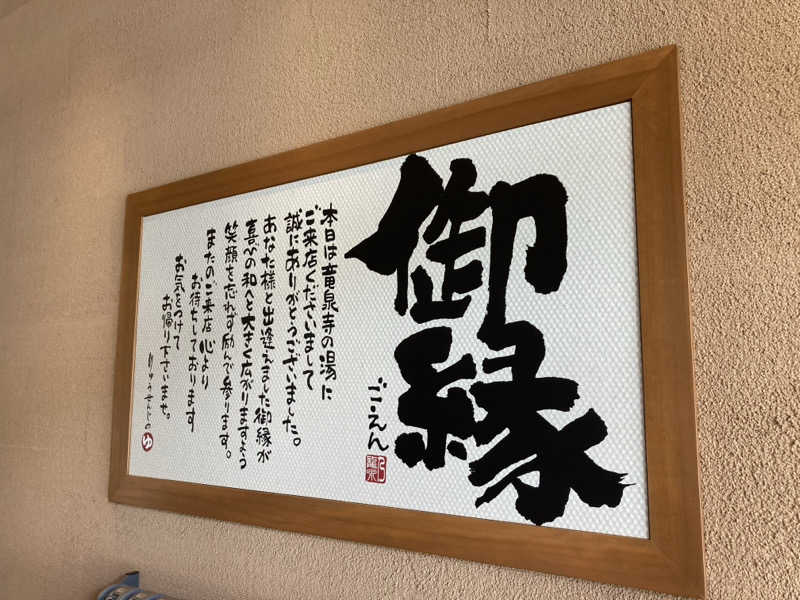 御縁
ご・えん
本日は竜泉寺の湯に
ご来店くださいまして
誠にありがとうございました。
あなた様と出逢えました御縁が
喜びの和へと大きく広がりますよう
笑顔を忘れず励んで参ります。
またのご来店 心より
お待ちしております
お気をつけて
お帰り下さいませ。
りゅうせんじの ゆ